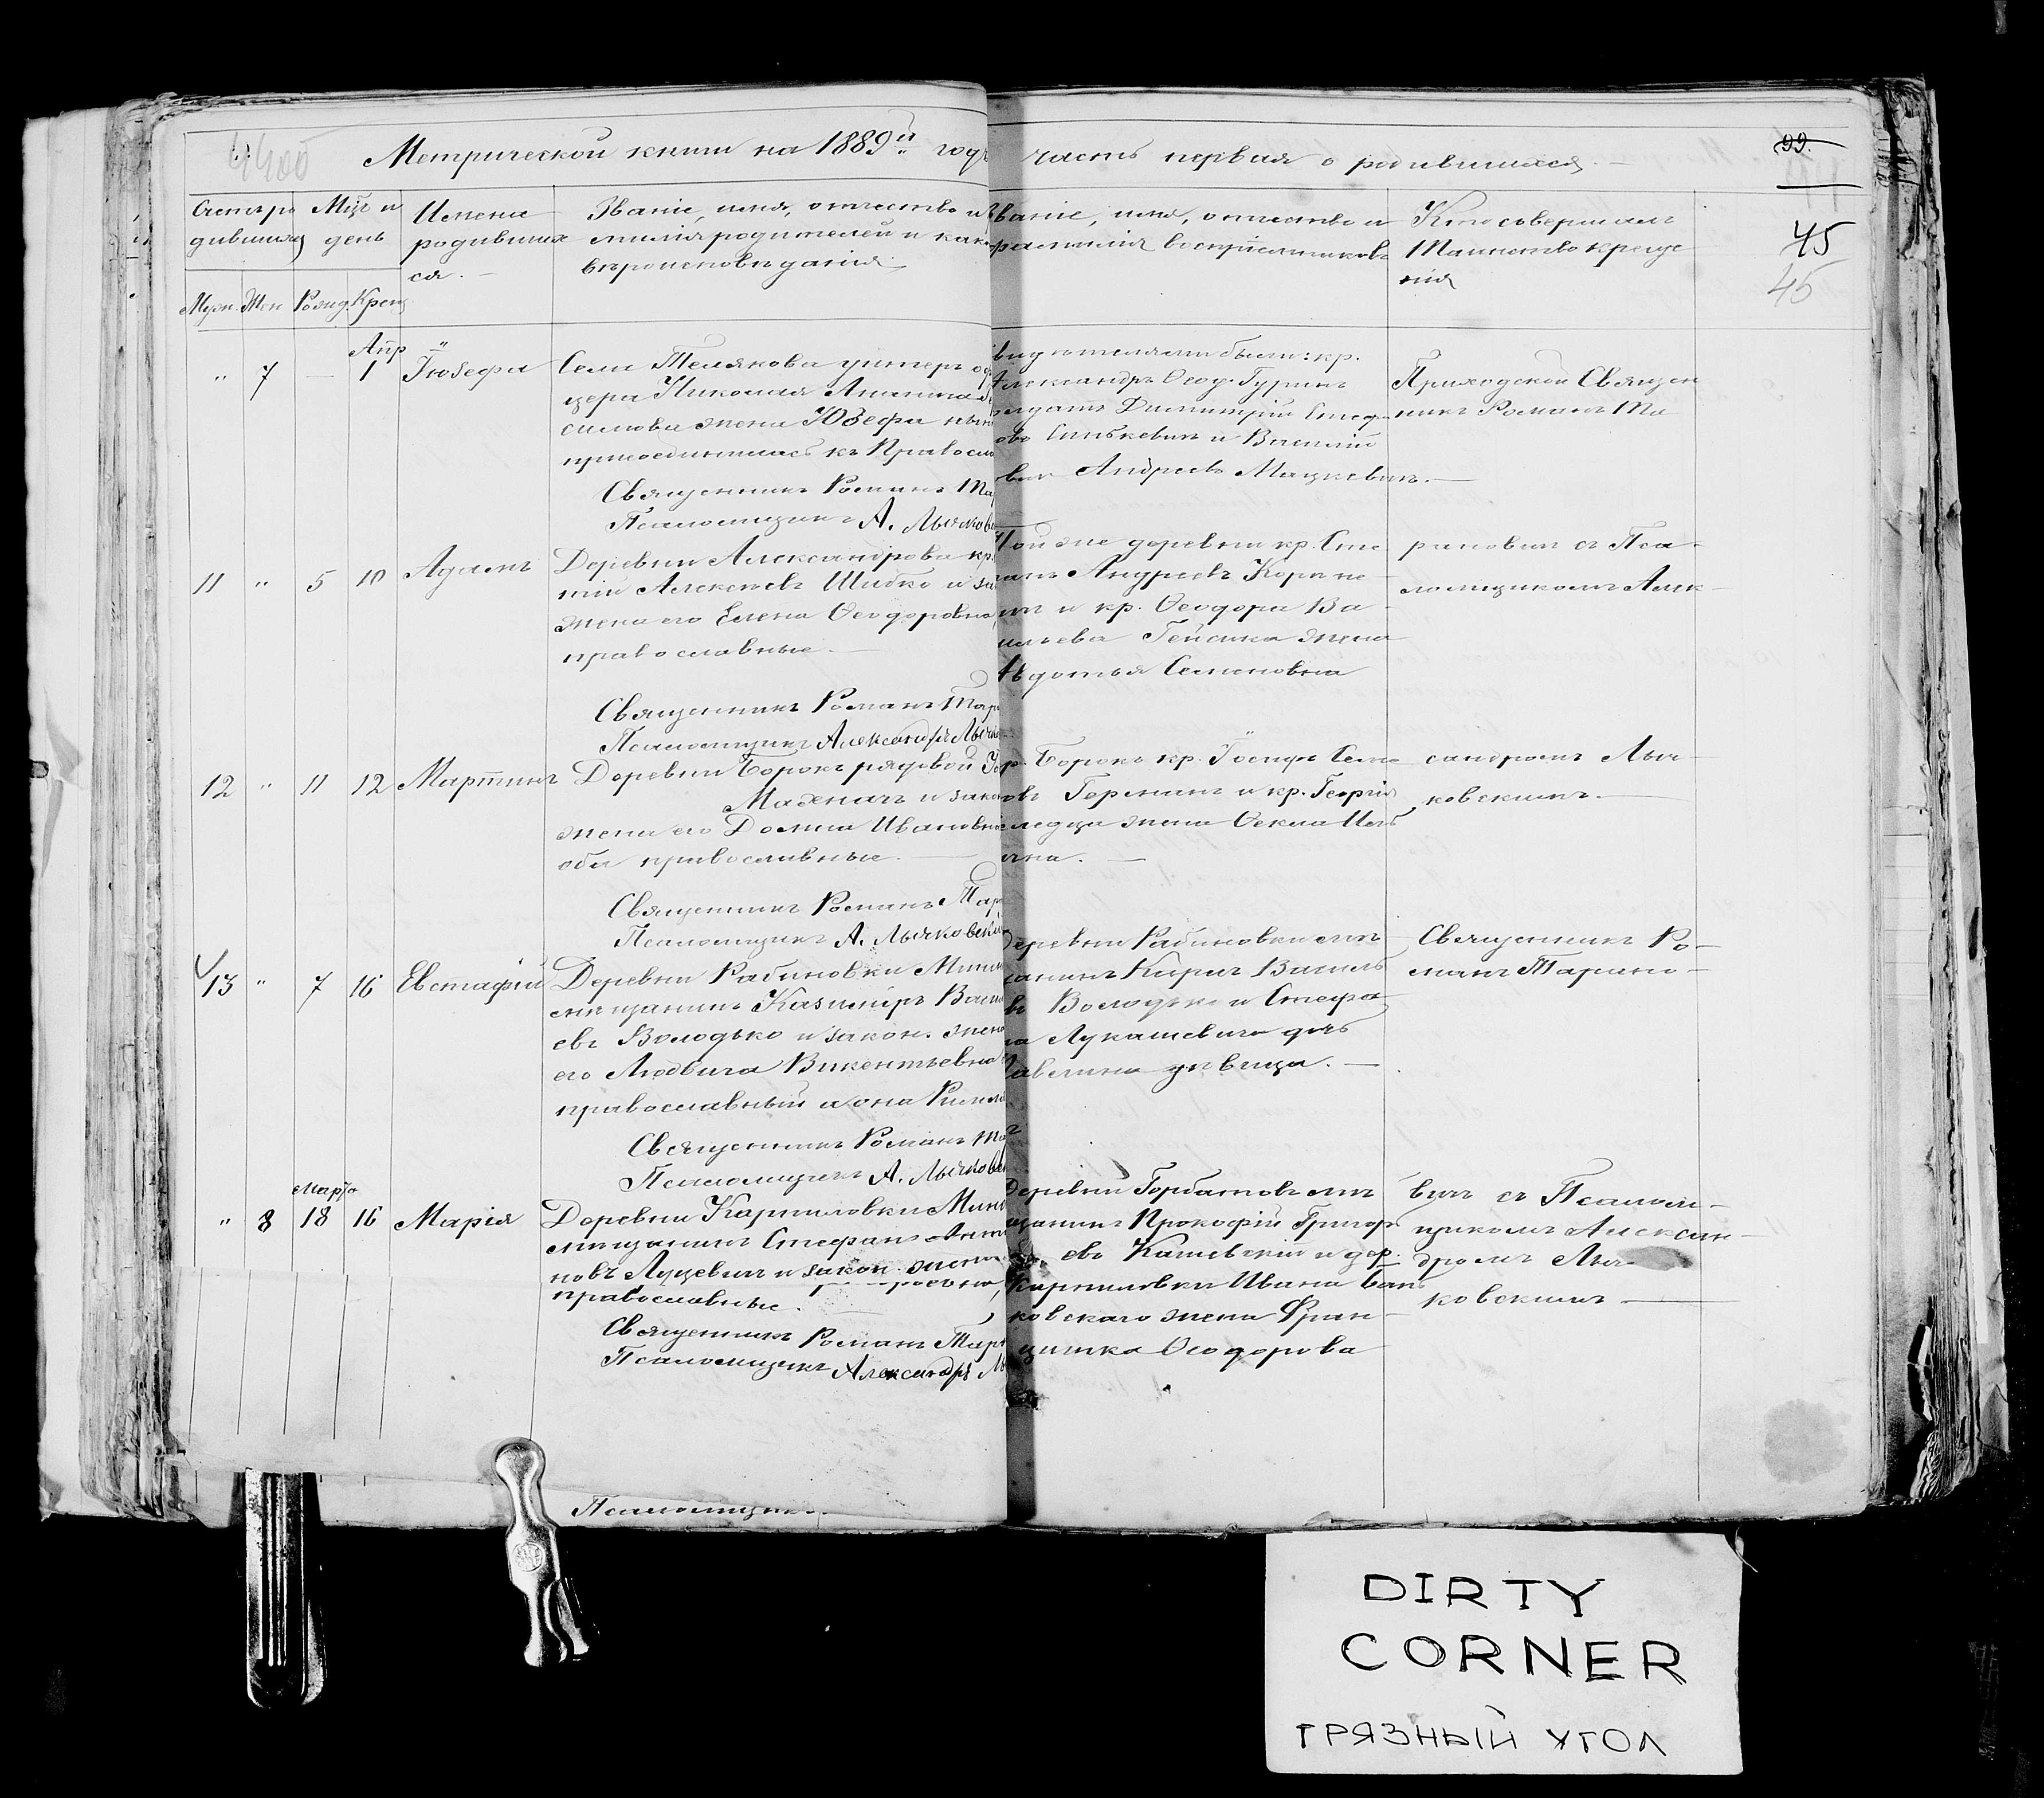 4400
Метрической книги на 1889й годъ часть первая о родившихся.
99.
45
45
Мѣц и день
Имена родившихся.
Званіе, имя, отчество и
милія родителей и как
вѣроисповѣданія
Званіе, имя, отчество и
фамилія воспріемниковъ
Кто совершалъ
Таинство креще
нія
Муж. Жен Рожд. Крещ
Апр
" 7 — 1 Іюзефа
Села Телякова унтеръ оф
цера Николая
жена Юзефа нын
присоединилась къ Правосл
Священникъ Романъ Та
Псаломщикъ А. Лычков
свидѣтелями были: кр.
Александръ Ѳеод. Гуринъ
Димитрій
и Василій
Андреевъ Мацкевичъ.
Приходской Священ
никъ Романъ Та
11 " 5 10 Адамъ
Деревни Александрова кр.
Алексѣевъ Шибко и за
жена его Елена Ѳеодоровна,
православные.
Священникъ Романъ Тар
Псаломщикъ Александръ Лычк
Той же деревни кр. Сте
Андреевъ
и кр. Ѳеодора Ва
сильева жена
Авдотья Семеновна
рановичъ съ Пса-
ломщикомъ Алек-
12 " 11 12 Мартинъ
Деревни Борокъ рядовой
и закон
жена его Домна Ивановна
оба православные.
Священникъ Романъ Тар
Псаломщикъ А. Лычковскі
Борокъ кр. Іосифъ Семе
овъ Германъ и кр. Георгія
жена Ѳекла
сандромъ Лыч-
ковскимъ.
13 " 7 16 Евстафій
Деревни Рабиновки Минск
мѣщанинъ Казимиръ Василь
евъ Володько и закон. жена
его Людвига Викентьевна
православный а она Римск
Священникъ Романъ Та
Псаломщикъ А. Лычковск
Деревни Рабиновки мѣ
щанинъ Кирилъ Василь
въ Володько и Стефа
на Лукашевича дочь
Павелина дѣвица.
Священникъ Ро-
манъ Тарано-
Марта
" 8 18 16 Марія
Деревни Карпиловки Минс
мѣщанинъ Стефанъ Анто
новъ Луцевичъ и закон. жена
православные.
Священникъ Романъ Тар
Псаломщикъ Александръ Л
Деревни Горбатовъ мѣ
щанинъ Прокофій Григорь
евъ Кашевскій и дер.
Карпиловки Ивана
ковскаго жена Фран
цишка Ѳеодорова
вичъ съ Псалом-
щикомъ Алексан-
дромъ Лыч
ковскимъ
Псаломщикъ
DIRTY
CORNER
ГРЯЗНЫЙ УГОЛ